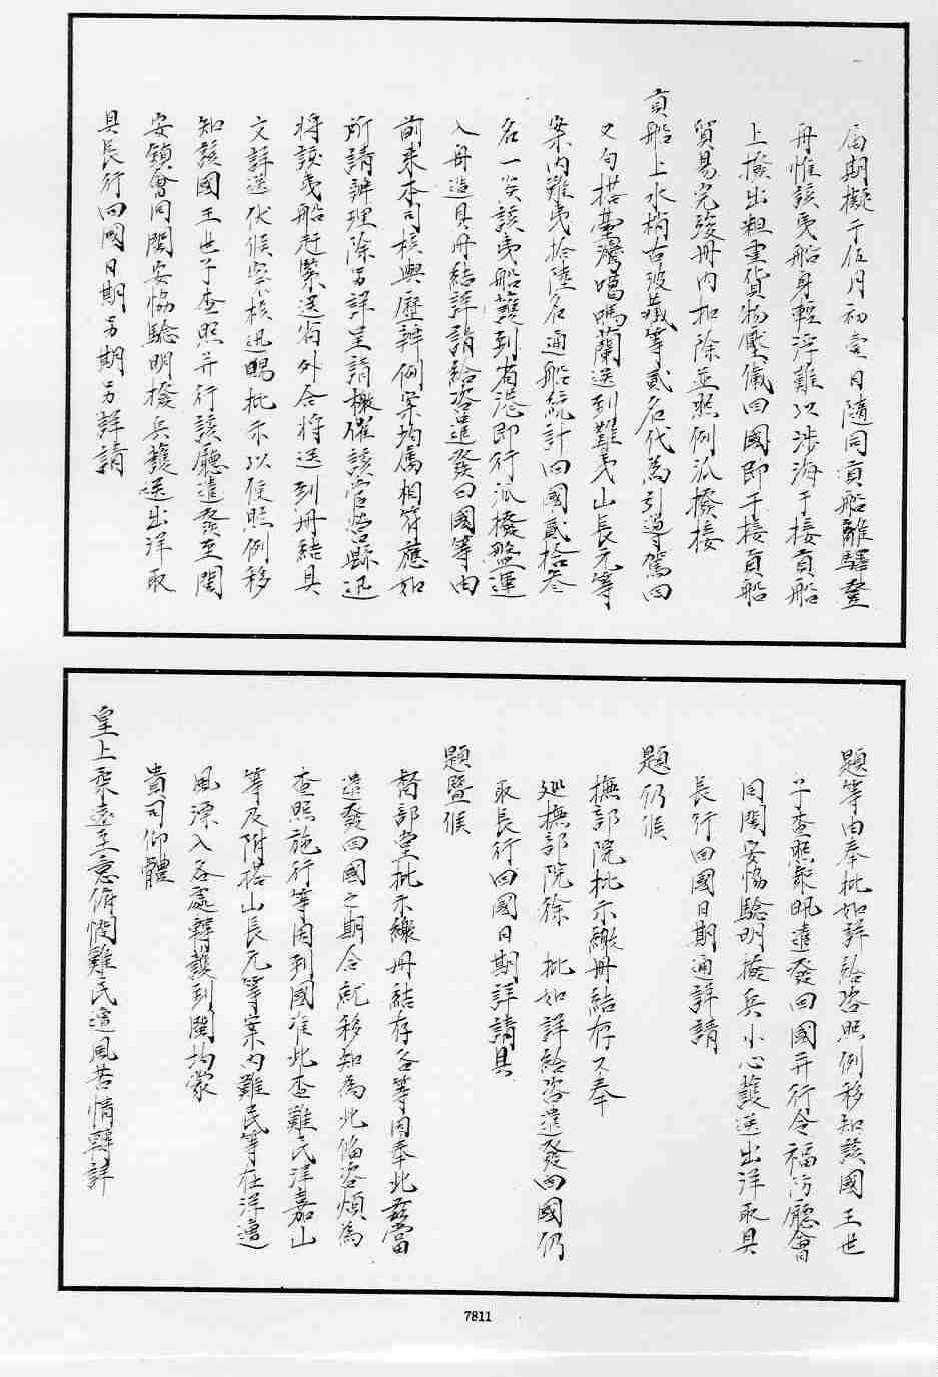 屆期擬于伍月初壹日隨同貢船離驛登
舟惟該夷船身輕浮難以涉海于接貢船
上撿出粗重貨物壓儎回國即于接貢船
貿易完竣冊內扣除並照例派撥接
貢船上水梢古波藏等貳名代為引導駕回
又勻搭臺灣噶瑪蘭送到難夷山長元等
案內難夷拾陸名通船統計回國貳拾叁
名一俟該夷船護到省港即行派撥盤運
入舟造具冊結詳請給咨遣發回國等由
前來本司核與歷辦例案均屬相符應如
所請辦理除另詳呈請檄催該管營縣迅
將該夷船趕緊送省外合將送到冊結具
文詳送伏候察核迅賜批示以便照例移
知該國王世子查照并行該廳遣發至閩
安鎮會同閩安協驗明撥兵護送出洋取
具長行回國日期另期另詳請
題等由奉批如詳給咨照例移知該國王世
子查照前呪遣發回國并行令福防廳會
同閩安協驗明撥兵小心護送出洋取具
長行回國日期通詳請
題仍候
撫部院批示繳冊結存又奉
巡撫部院徐 批如詳給咨遣發回國仍
取長行回國日期詳請具
題暨候
督部堂批示繳冊結存各等因奉此茲當
遣發回國之期合就移知為此備咨煩為
查照施行等因到國准此查難民洋嘉山
等及附搭山長元等案內難民等在洋遭
風漂入各處轉護到閩均蒙
貴司仰體
皇上柔遠至意俯憫難民遭風苦情轉詳
7811